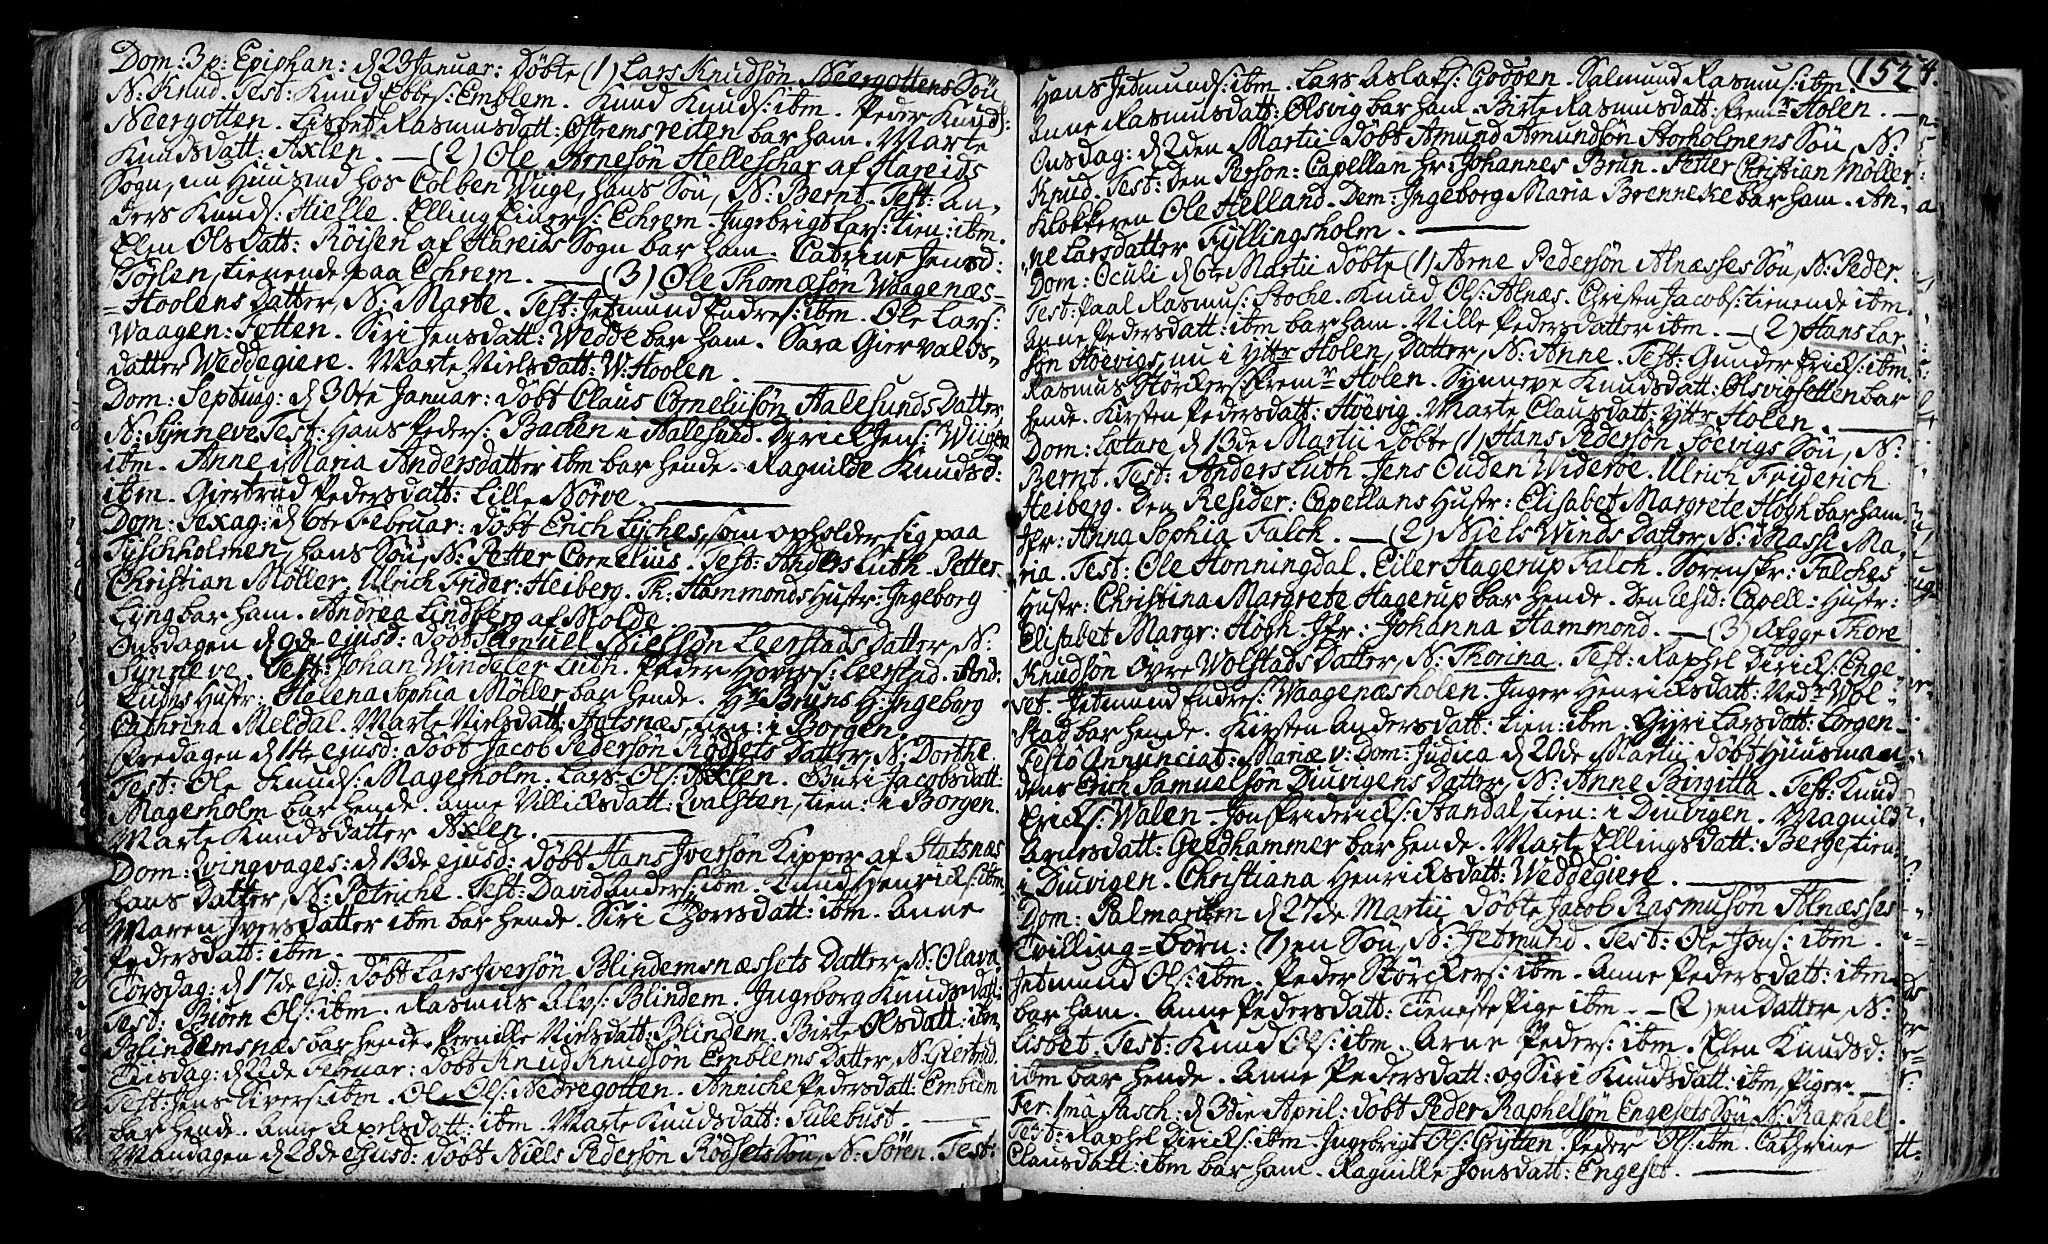 Dom: 3 p: Epiphan: d 23 Januar: döbte (1) Lars Knudsön Neergottens Sön
N: Knud. Test: Knud Ebbes: Emblem. Knud Knuds: ibm. Peder Knuds:
Neergotten. Lisbet Rasmusdatt: Östremsreiten bar ham. Marte
Knudsdatt. Axlen. — (2) Ole Arnesön Helleschar af Hareids
Sogn, nu Huusmd hos Colben Wuge, hans Sön, N: Bernt. Test: An,
ders Knuds: Hielle. Elling Einers: Echrem. Ingebrigt Lars: tien: ibm.
Elen Olsdatt: Röisen af Hareids Sogn bar ham. Catrine Jensd:
Torlen, tienende paa Echrem. — (3) Ole Thomæsön Waagenæs-
=Hoolens Datter, N: Marte. Test: Jetmund Endres: ibm. Ole Lars:
Waagen: Fetten. Siri Jensdatt: Wedde bar ham. Sara Giervalds-
datter Weddegiere. Marte Nielsdatt: W: Hoolen.
Dom: Septuag: d 30te Januar: döbt Claus Corneliisön Aalesunds Datter
N: Synneve Test: Hans Peders: Bachen i Aalesund. Derick Jens: Wiigen
ibm. Anne Maria Andersdatter ibm bar hende. Ragnilde Knudsd:
ibm. Giertrud Pedersdatt: Lille Nörve.
Dom: Sexag: d 6te Februar: döbt Erich Lyches, som opholder sig paa
Tyschholmen, hans Sön, N: Petter Cornelius. Test: Anders Luth. Petter
Christian Möller. Ulrich Frider: Heiberg. Th: Hammonds Hustr: Ingeborg
Lyng bar ham. Andrea Lindberg af Molde.
Onsdagen d 9de ejusd: döbt Samuel Nielsön Leerstads Datter, N:
Synneve. Test: Johan Windeler Luth. Peder Hovers: Leerstad. And:
Luths Hustr: Helena Sophia Möller bar hende. Hr Bruns H: Ingeborg
Cathrina Meldal. Marte Nielsdatt: Hatsnæs, tien: i Borgen.
Fredagen d 11te ejusd: döbt Jacob Pedersön Rödsets Datter, N: Dorthe
Test: Ole Knuds: Magerholm. Lars Ols: Axlen. Guri Jacobsdatt:
Magerholm bar hende. Anne Villicksdatt: Qvalsten, tien: i Borgen.
Marte Knudsdatter Axlen.
Dom: Qvinqvages: d 13de ejusd: döbt Hans Iversön Kipper af Statsnæs
hans Datter, N: Petriche. Test: David Anders: ibm. Knud Henricks: ibm
Maren Iversdatter ibm bar hende. Siri Thorsdatt: ibm. Anne
Pedersdatt: ibm.
Torsdag: d 17de ejd: döbt Lars Iversön Blindemsnæssets Datter, N: Olava
Test: Biörn Ols: ibm. Rasmus Alvs: Blindem. Ingeborg Knudsdatt:
Blindemsnæs bar hende. Pernille Nielsdatt: Blindem. Birte Olsdatt: ibm.
Tiisdag: d 22de Februar: döbt Knud Knudsön Emblems Datter, N: Giertrud.
Test: Jens Sivers: ibm. Ole Ols: Nedregotten. Anniche Pedersdatt: Emblem
bar hende. Anne Axelsdatt: ibm. Marte Knudsdatt: Sulebust.
Mandagen d 28de ejusd: döbt Niels Pedersön Rödsets Sön, N: Sören. Test:
152
Hans Jetmunds: ibm. Lars Aslaks: Godöen. Salmund Rasmus: ibm.
Anne Rasmusdatt: Olsvig bar ham. Birte Rasmusdatt: Fremr Holen.
Onsdag: d 2den Martii döbt Amund Amundsön Storholmens Sön, N:
Knud. Test: Den Person: Capellan Hr: Johannes Brun. Petter Christian Möller.
Klokkeren Ole Helland. Dem: Ingeborg Maria Brenneke bar ham. An-
ne Larsdatter Fyllingsholm.
Dom: Oculi d 6te Martii döbte (1) Arne Pedersön Alnæsses Sön, N: Peder.
Test: Paal Rasmus: Stoche. Knud Ols: Alnæs. Christen Jacobs: tienende ibm.
Anne Pedersdatt: ibm bar ham. Ville Pedersdatter ibm. — (2) Hans Lar
sön Höevigs, nu i Yttr Holen, Datter, N: Anne. Test: Gunder Ericks: ibm.
Rasmus Störckers: Fremr Holen. Synneve Knudsdatt: Olsvigsetten bar
hende. Kirsten Pedersdatt: Höevig. Marte Clausdatt: Yttr Holen.
Dom: Lætare d 13de Martii döbte (1) Hans Pedersön Söevigs Sön, N:
Bernt. Test: Anders Luth. Jens Ouden Wideröe. Ulrich Friderich
Heiberg. Den Resider: Capellans Hustr: Elisabet Margrete Högh bar ham.
Jfr: Anna Sophia Falch. — (2) Niels Winds Datter, N: Massi Ma-
ria. Test: Ole Honningdal. Eiler Hagerup Falch. Sorenskr: Falches
Hustr: Christina Margrete Hagerup bar hende. Den resid: Capell: Hustr:
Elisabet Margr: Högh. Jfr: Johanna Hammond. — (3) Aegge Thore
Knudsön Övre Wolstads Datter, N: Thorina. Test: Raphel Dirick: Enge-
set. Jetmund Endres: Waagenæsholen. Inger Henricksdatt: Nedr Wol-
stad bar hende. Kirsten Andersdatt: tien: ibm. Gyri Larsdatt: Lorgen-
Festo Annunciat: Mariæ v: Dom: Judica d 20de Martii döbt Huusman-
dens Erich Samuelsön Diuvigens Datter, N: Anne Birgitta. Test: Knud
Ericks: Walen. Jon Friderick: Standal, tien: i Diuvigen. Magnild
Arnesdatt: Geedhammer bar hende. Marte Ellingsdatt: Berge, tien:
i Diuvigen. Christiana Henricksdatt: Weddegiere.
Dom: Palmarum d 27de Martii döbte Jacob Rasmusön Alnæsses
Tvilling=börn: (1) en Sön, N: Jetmund. Test: Ole Jons: ibm.
Jetmund Ols: ibm. Peder Störckers: ibm. Anne Pedersdatt: ibm
bar ham. Anne Pedersdatt: Tieneste Pige ibm. — (2) en Datter, N:
Lisbet. Test: Knud Ols: ibm. Arne Peders: ibm. Elen Knudsd:
ibm bar hende. Anne Pedersdatt: og Siri Knudsdatt: ibm, Piger.
Fer: 1mâ Pasch: d 3die April: döbt Peder Raphelsön Engesets Sön N: Raphel.
Test: Raphel Diricks: ibm. Ingebrigt Ols: Grytten. Peder Ols: ibm. Cathrine
Clausdatt: ibm bar ham. Ragnille Jonsdatt: Engeset.